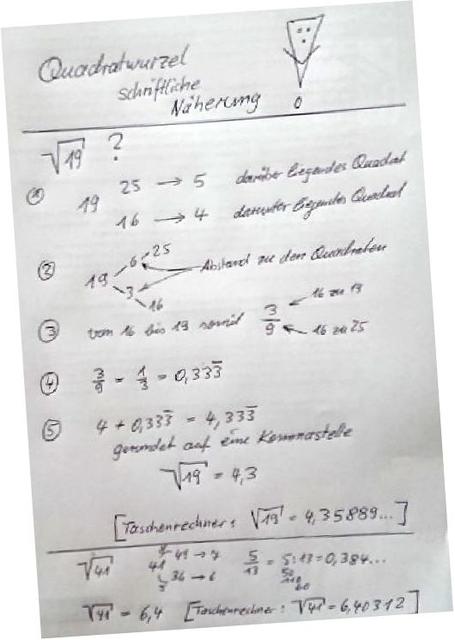 Quadratwurzel
schriftliche
Näherung
√19 ?
① 19 25 → 5 darüber liegendes Quadrat
16 → 4 darunter liegendes Quadrat
② 19 6 25
3 16 Abstand zu den Quadraten
③ vom 16 bis 19 somit 3/9 16 zu 19
16 zu 25
④ 3/9 = 1/3 = 0,333̅
⑤ 4 + 0,333̅ = 4,333̅
gerundet auf eine Kommastelle
√19 = 4,3
[Taschenrechner: √19 = 4,35889...]
√41 41 8 49 → 7 5/13 = 5:13 = 0,384...
5 36 → 6 50
110
60
√41 = 6,4 [Taschenrechner: √41 = 6,40312]